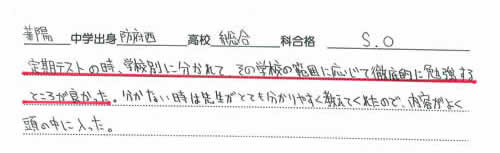 華陽 中学出身 防府西 高校 総合 科合格 S.O
定期テストの時、学校別に分かれて、その学校の範囲に応じて徹底的に勉強する
ところが良かった。分かない時は先生がとても分かりやすく教えてくれたので、内容がよく
頭の中に入った。